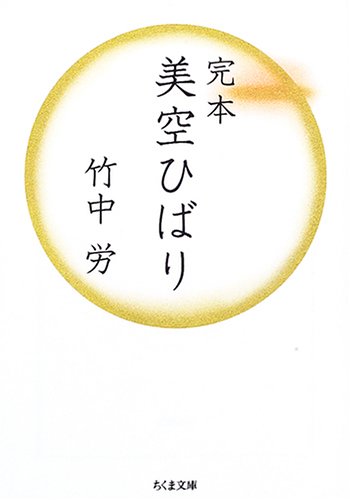 完本
美空ひばり
竹中労
ちくま文庫